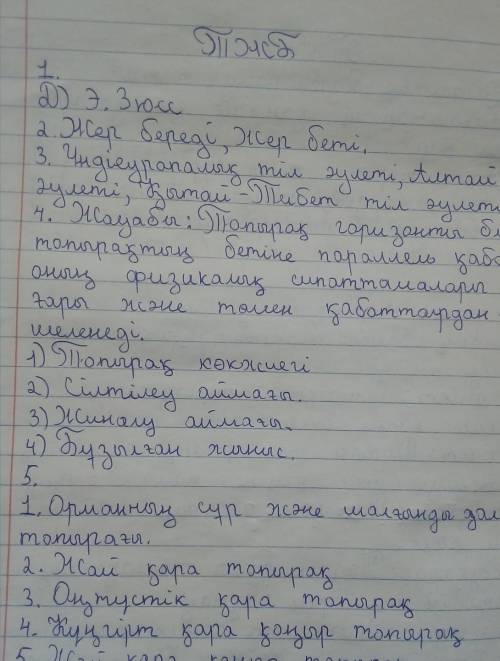 ТЖБ
1.
D) Э. Зюсс
2. Жер береді, Жер беті.
3. Үндіеуропалық тіл әулеті, Алтай
әулеті, Қытай-Тибет тіл әулеті
4. Жауабы: Топырақ горизонты бі
топырақтың бетіне параллель қаб
оның физикалық сипаттамалары
ғары және төмен қабаттаурдан
шеленеді.
1) Топырақ көкжиегі
2) Сілтілеу аймағы.
3) Жиналу аймағы.
4) Бұзылған жыныс.
5.
1. Орманның сұр және шалғынды дал
топырағы.
2. Жай қара топырақ
3. Оңтүстік қара топырақ
4. Күңгірт қара қоңыр топырақ
5. Жай қара қоңыр